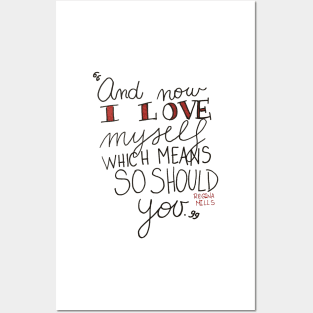 "And now
I LOVE
myself
WHICH MEANS
SO SHOULD
you."
REGINA
MILLS